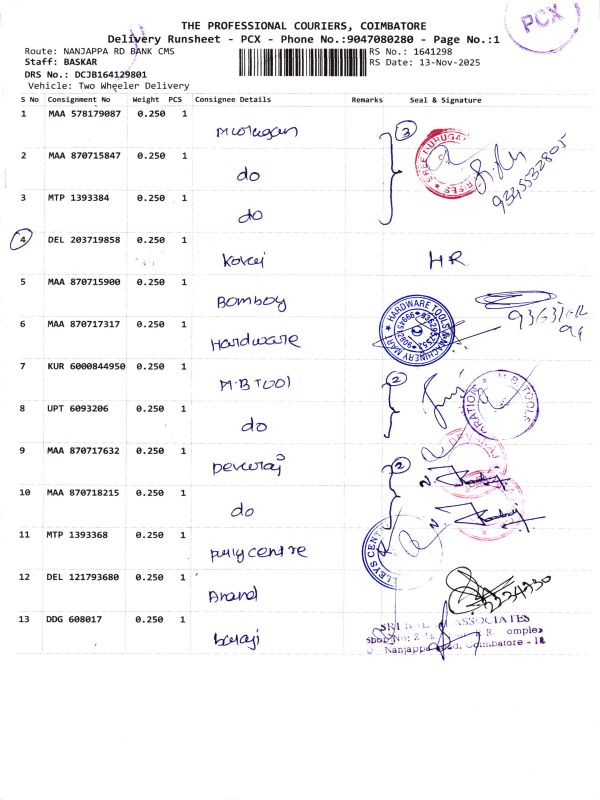 THE PROFESSIONAL COURIERS, COIMBATORE
PCX
Delivery Runsheet - PCX - Phone No.:9047080280 - Page No.:1
Route: NANJAPPA RD BANK CMS RS No.: 1641298
Staff: BASKAR RS Date: 13-Nov-2025
DRS No.: DCJB164129801
Vehicle: Two Wheeler Delivery
S No Consignment No Weight PCS Consignee Details Remarks Seal & Signature
1 MAA 578179087 0.250 1 Murugan 3
9345532805
2 MAA 870715847 0.250 1 do
3 MTP 1393384 0.250 1 do
4 DEL 203719858 0.250 1 HR
5 MAA 870715900 0.250 1 Bombay
6 MAA 870717317 0.250 1 Hardware
HARDWARE TOOLS & MACHINERY MART
7 KUR 6000844950 0.250 1 M.B TOOl 2
M.B. TOOLS
8 UPT 6093206 0.250 1 do
9 MAA 870717632 0.250 1 Devaraj 2
DEVARAJ
10 MAA 870718215 0.250 1 do
11 MTP 1393368 0.250 1 pully centre
LEYS CENT
12 DEL 121793680 0.250 1 Anand
13 DDG 608017 0.250 1 balaji
SRI ASSOCIATES
Shop No: 2 R. Complex
Nanjappa Road, Coimbatore - 18